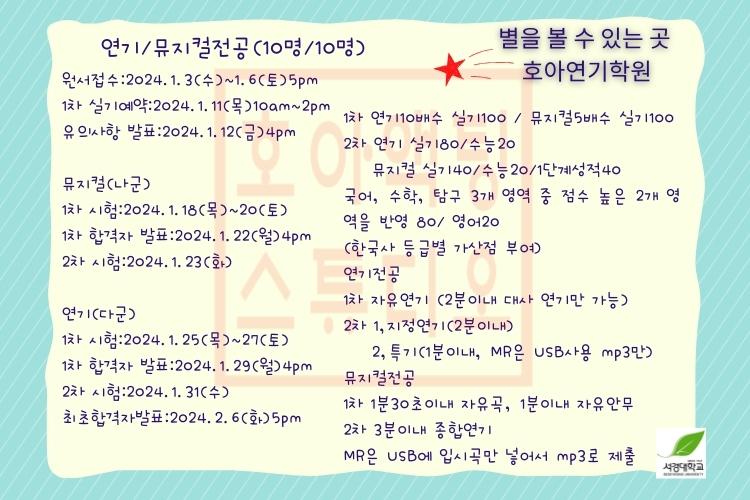 연기/뮤지컬전공(10명/10명)
원서접수:2024.1.3(수)~1.6(토)5pm
1차 실기예약:2024.1.11(목)10am~2pm
유의사항 발표:2024.1.12(금)4pm
뮤지컬(나군)
1차 시험:2024.1.18(목)~20(토)
1차 합격자 발표:2024.1.22(월)4pm
2차 시험:2024.1.23(화)
연기(다군)
1차 시험:2024.1.25(목)~27(토)
1차 합격자 발표:2024.1.29(월)4pm
2차 시험:2024.1.31(수)
최초합격자발표:2024.2.6(화)5pm
별을 볼 수 있는 곳
호아연기학원
1차 연기10배수 실기100 / 뮤지컬5배수 실기100
2차 연기 실기80/수능20
뮤지컬 실기40/수능20/1단계성적40
국어, 수학, 탐구 3개 영역 중 점수 높은 2개 영
역을 반영 80/ 영어20
(한국사 등급별 가산점 부여)
연기전공
1차 자유연기 (2분이내 대사 연기만 가능)
2차 1,지정연기(2분이내)
2,특기(1분이내, MR은 USB사용 mp3만)
뮤지컬전공
1차 1분30초이내 자유곡, 1분이내 자유안무
2차 3분이내 종합연기
MR은 USB에 입시곡만 넣어서 mp3로 제출
호아액팅
스튜디오
서경대학교